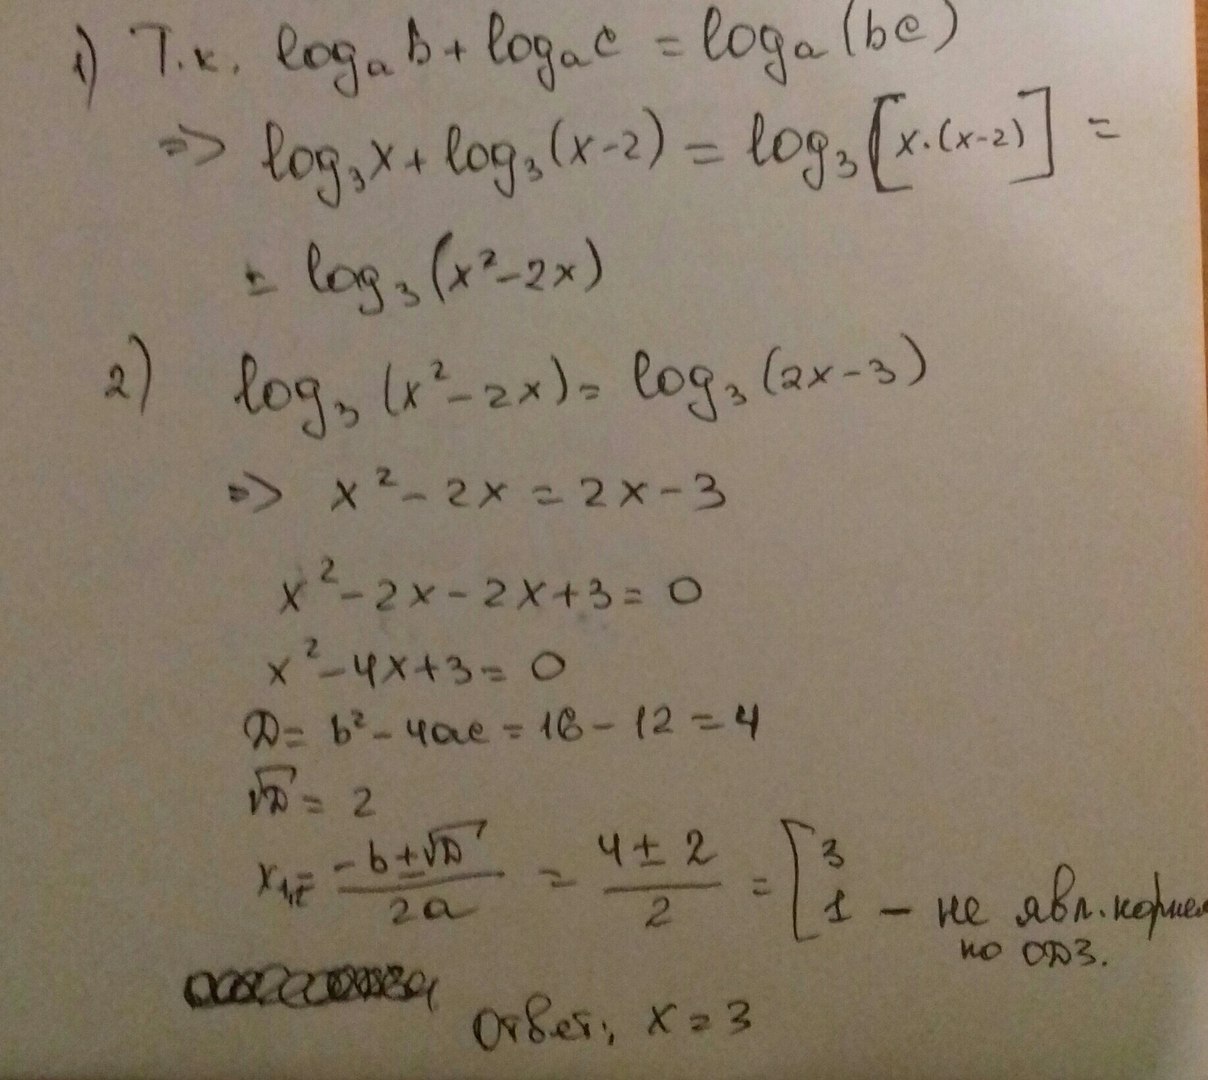 1) Т.к. log_a b + log_a c = log_a (bc)
=> log_3 x + log_3 (x-2) = log_3 [x·(x-2)] =
= log_3 (x²-2x)
2) log_3 (x²-2x) = log_3 (2x-3)
=> x²-2x = 2x-3
x²-2x-2x+3=0
x²-4x+3=0
D = b²-4ac = 16-12=4
√D = 2
x_1,2 = (-b±√D)/(2a) = (4±2)/2 = [3
1 - не явл. корнем
по ОДЗ.
Ответ: x=3